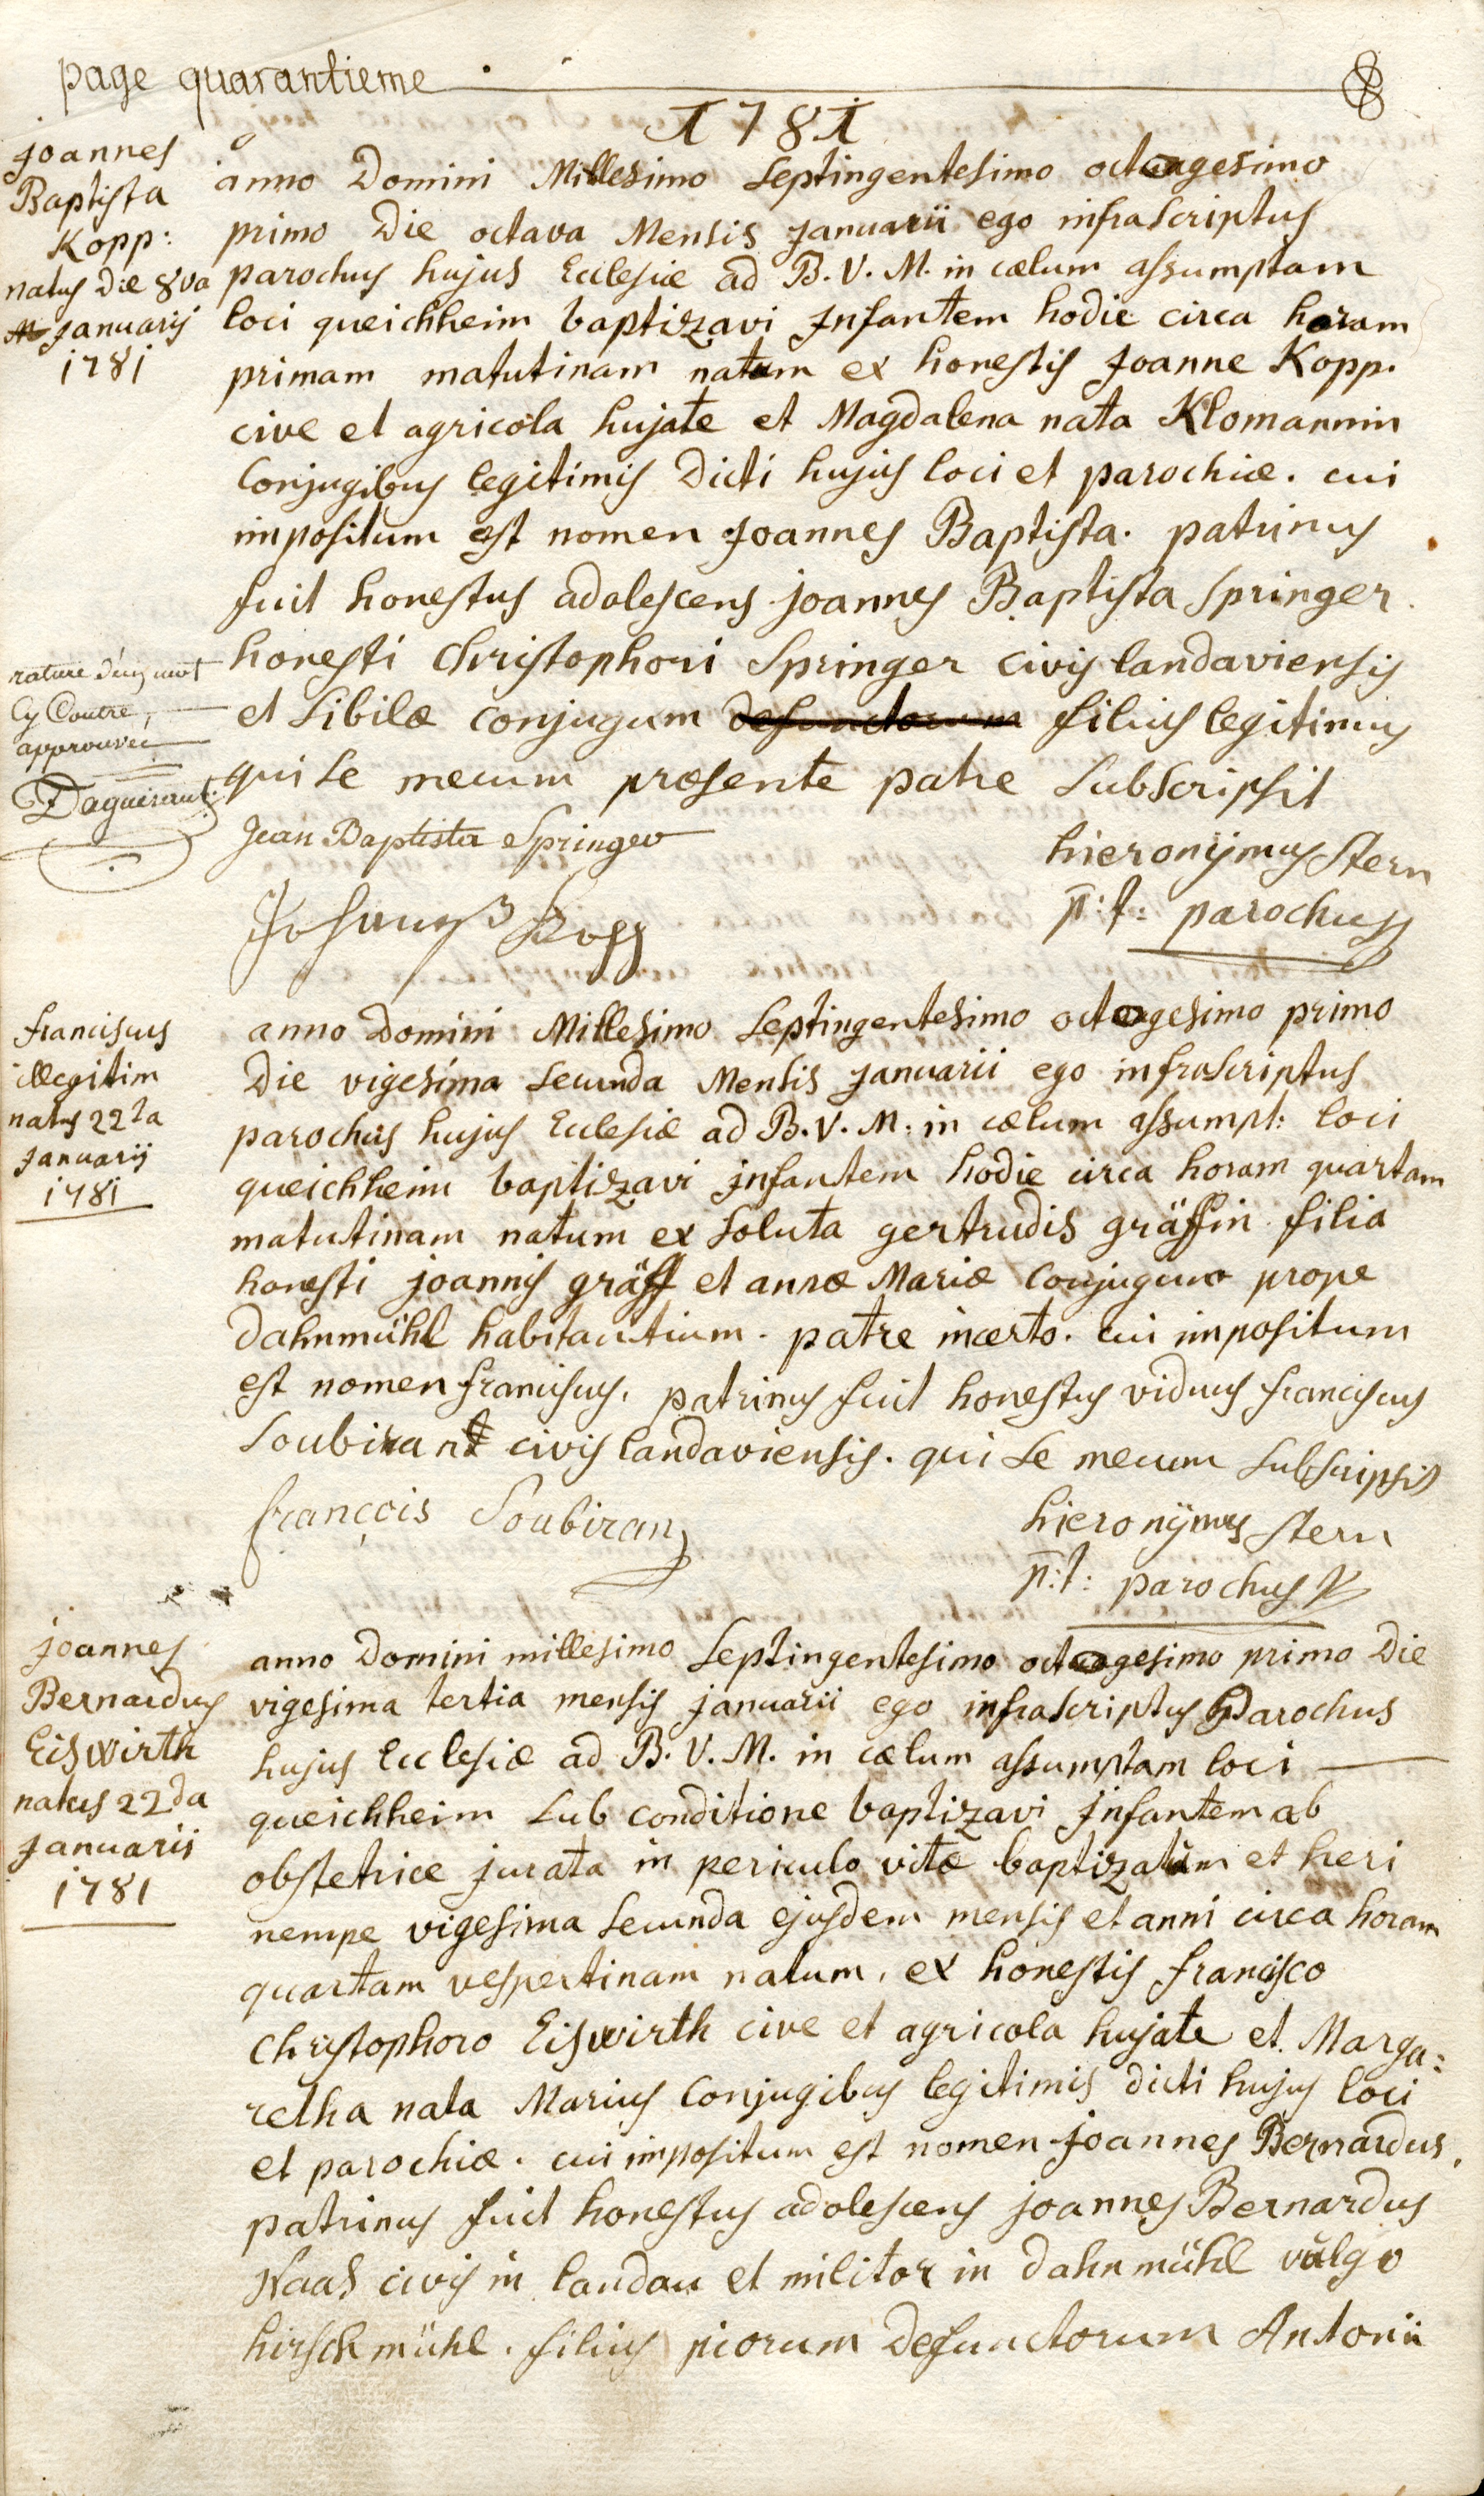 page quarantieme
1781
joannes
Baptista
Kopp:
natus die 8va
januarij
1781
anno Domini Millesimo Septingentesimo octuagesimo
primo Die octava Mensis januarii ego infrascriptus
parochus hujus Ecclesiæ ad B. V. M. in cœlum assumptam
loci queichheim baptizavi jnfantem hodie circa horam
primam matutinam natum ex honestis joanne Kopp.
cive et agricola hujate et Magdalena nata Klomannin
Conjugibus legitimis Dicti hujus loci et parochiæ. cui
impositum est nomen joannes Baptista. patrinus
fuit honestus adolescens joannes Baptista Springer
honesti Christophori Springer civis landaviensis
et Sibilæ conjugum defunctorum filius legitimus
qui se mecum præsente patre subscripsit
rature d'un mot
Cy Contre,
approuvée
Daguineaut
Jean Baptista Springer
hieronijmus Stern
p:t: parochus
Johannes Kopp
franciscus
illegitim
natus 22da
januarij
1781
anno Domini Millesimo Septingentesimo octogesimo primo
Die vigesima secunda Mensis januarii ego infrascriptus
parochus hujus Ecclesiæ ad B. V. M: in cœlum assumpt: loci
queichheim baptizavi jnfantem hodie circa horam quartam
matutinam natum ex soluta gertrudis gräffin filia
honesti joannis gräff et annæ Mariæ Conjugum prope
Dahnmühl habitantium. patre incerto. cui impositum
est nomen franciscus. patrinus fuit honestus viduus franciscus
Soubirant civis landaviensis. qui se mecum subscripsit
françois Soubiran
hieronijmus Stern
p:t: parochus
joannes
Bernardus
Eiswirth
natus 22da
januarii
1781
anno Domini millesimo Septingentesimo octogesimo primo Die
vigesima tertia mensis januarii ego infrascriptus parochus
hujus Ecclesiæ ad B. V. M. in cœlum assumptam loci
queichheim sub conditione baptizavi jnfantem ab
obstetrice jurata in periculo vitæ baptizatum et heri
nempe vigesima secunda ejusdem mensis et anni circa horam
quartam vespertinam natum, ex honestis francisco
Christophoro Eiswirth cive et agricola hujate et Marga:
retha nata Marius Conjugibus legitimis dicti hujus loci
et parochiæ. cui impositum est nomen joannes Bernardus.
patrinus fuit honestus adolescens joannes Bernardus
Haas civis in landau et militor in Dahnmühl vulgo
hirschmühl. filius piorum Defunctorum Antonii